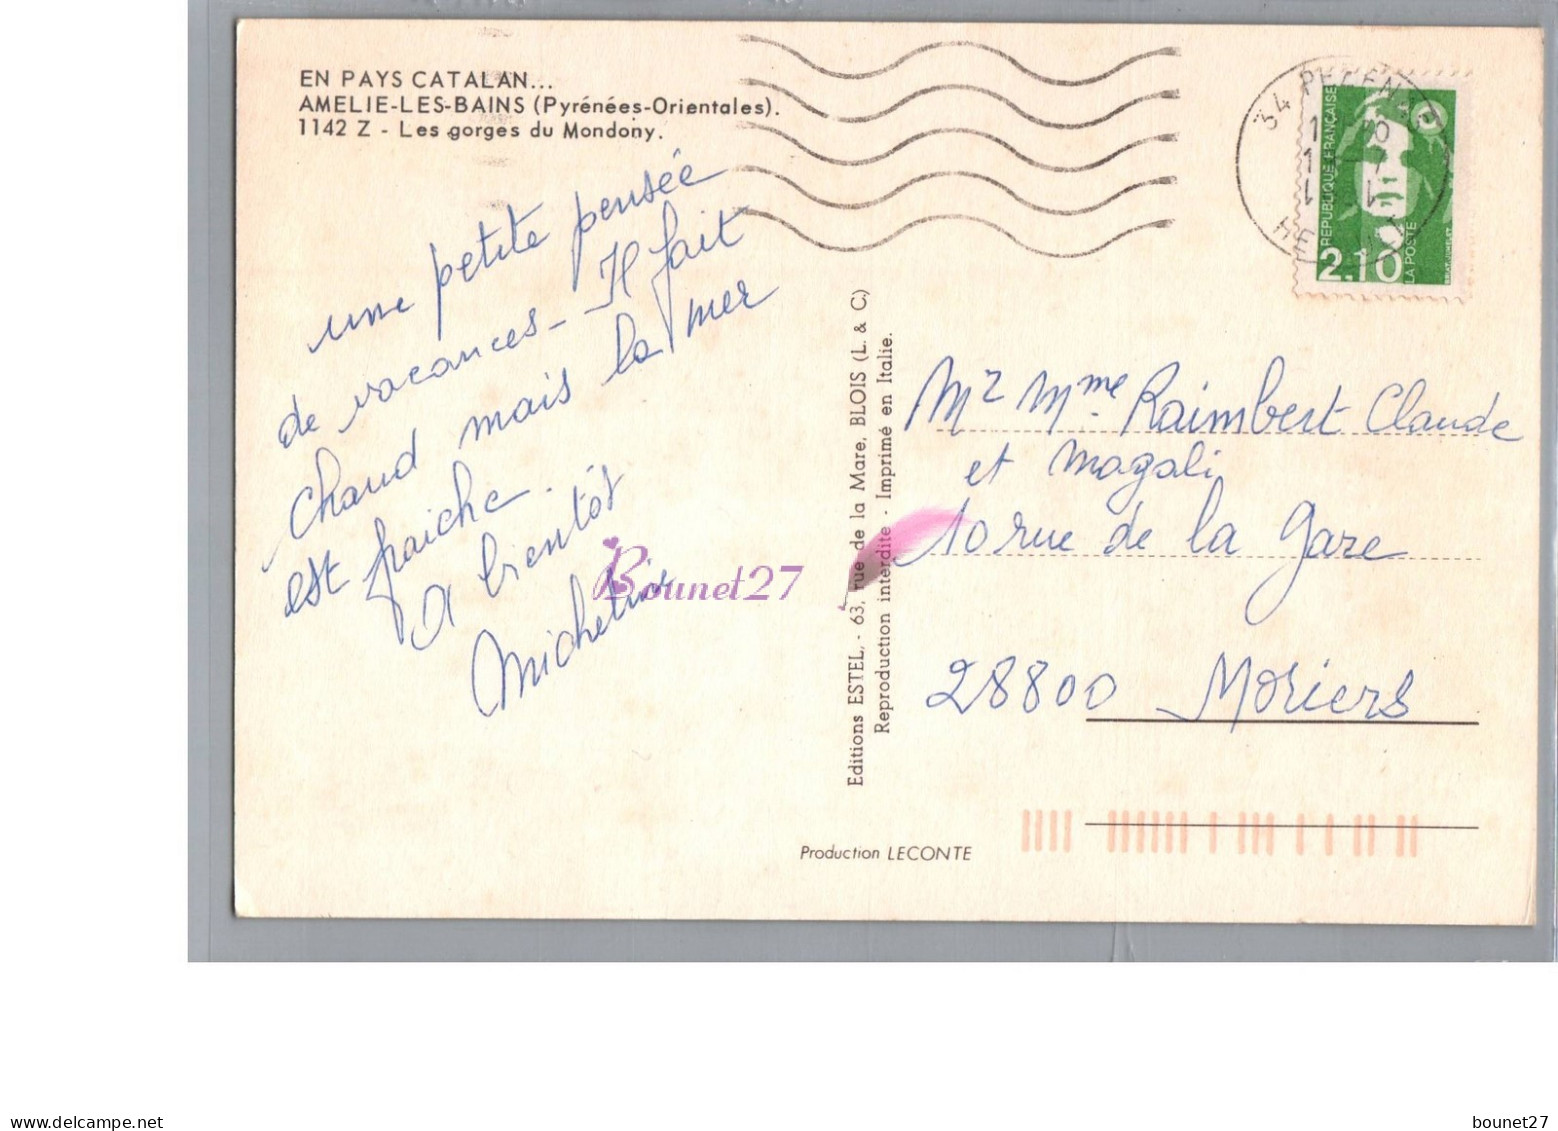 EN PAYS CATALAN...
AMELIE-LES-BAINS (Pyrénées-Orientales).
1142 Z - Les gorges du Mondony.
une petite pensée
de vacances - Il fait
chaud mais la mer
est fraiche.
A bientôt
Micheline
Editions ESTEL, - 63, rue de la Mare, BLOIS (L. & C.)
Reproduction interdite - Imprimé en Italie.
Production LECONTE
34
REPUBLIQUE FRANÇAISE
LA POSTE
2,10
Mr Mme Raimbert Claude
et Magali
10 rue de la gare
28800 Moriers
Bounet27
www.delcampe.net
bounet27